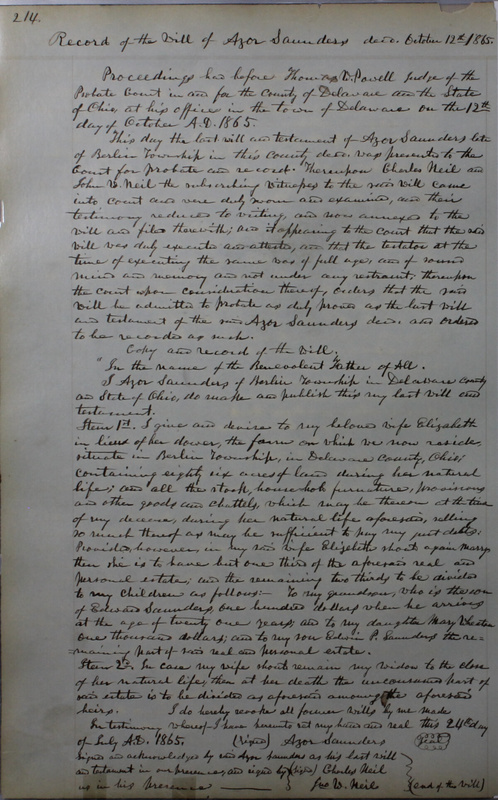 214.
Record of the Will of Azor Saunders decd. October 12th 1865.
Proceedings had before Thomas W. Powell Judge of the
Probate Court in and for the County of Delaware and the State
of Ohio, at his office in the town of Delaware on the 12th
day of October A.D. 1865.
This day the last will and testament of Azor Saunders late
of Berlin Township in this County decd. was presented to the
Court for probate and record. Thereupon Charles Neil and
John W. Neil the subscribing witnesses to the said will came
into court and were duly sworn and examined, and their
testimony reduced to writing, and now annexed to the
will and filed therewith; and it appearing to the court that the said
will was duly executed and attested, and that the testator at the
time of executing the same was of full age, and of sound
mind and memory and not under any restraint; thereupon
the court upon consideration thereof, orders that the said
will be admitted to probate as duly proved as the last will
and testament of the said Azor Saunders decd. and ordered
to be recorded as such.
Copy and record of the will.
"In the name of the Benevolent Father of All.
I Azor Saunders of Berlin Township in Delaware County
and State of Ohio, do make and publish this my last will and
testament.
Item 1st. I give and devise to my beloved wife Elizabeth
in lieu of her dower, the farm on which we now reside,
situate in Berlin Township, in Delaware County, Ohio,
containing eighty six acres of land during her natural
life; and all the stock, household furnature, provisions
and other goods and chattels, which may be thereon at the time
of my decease, during her natural life aforesaid, selling
so much thereof as may be sufficient to pay my just debts.
Provided, however, in my said wife Elizabeth should again marry
then she is to have but one third of the aforesaid real and
personal estate; and the remaining two thirds to be divided
to my children as follows:- To my grandson, who is the son
of Edward Saunders, one hundred dollars when he arrives
at the age of twenty one years; and to my daughter Mary
One thousand dollars; and to my son Edwin P. Saunders the re=
=maining part of said real and personal estate.
Item 2d. In case my wife should remain my widow to the close
of her natural life, then at her death the unconsumed part of
said estate is to be divided as aforesaid among the aforesaid
heirs. I do hereby revoke all former wills by me made
In testimony whereof I have hereunto set my hand and seal this 24th day
of July A.D. 1865. (Signed) Azor Saunders
Signed and acknowledged by said Azor Saunders as his last will
and testament in our presence, and signed by (Signed) Charles Neil
us in his presence Jno W. Neil (end of the will)